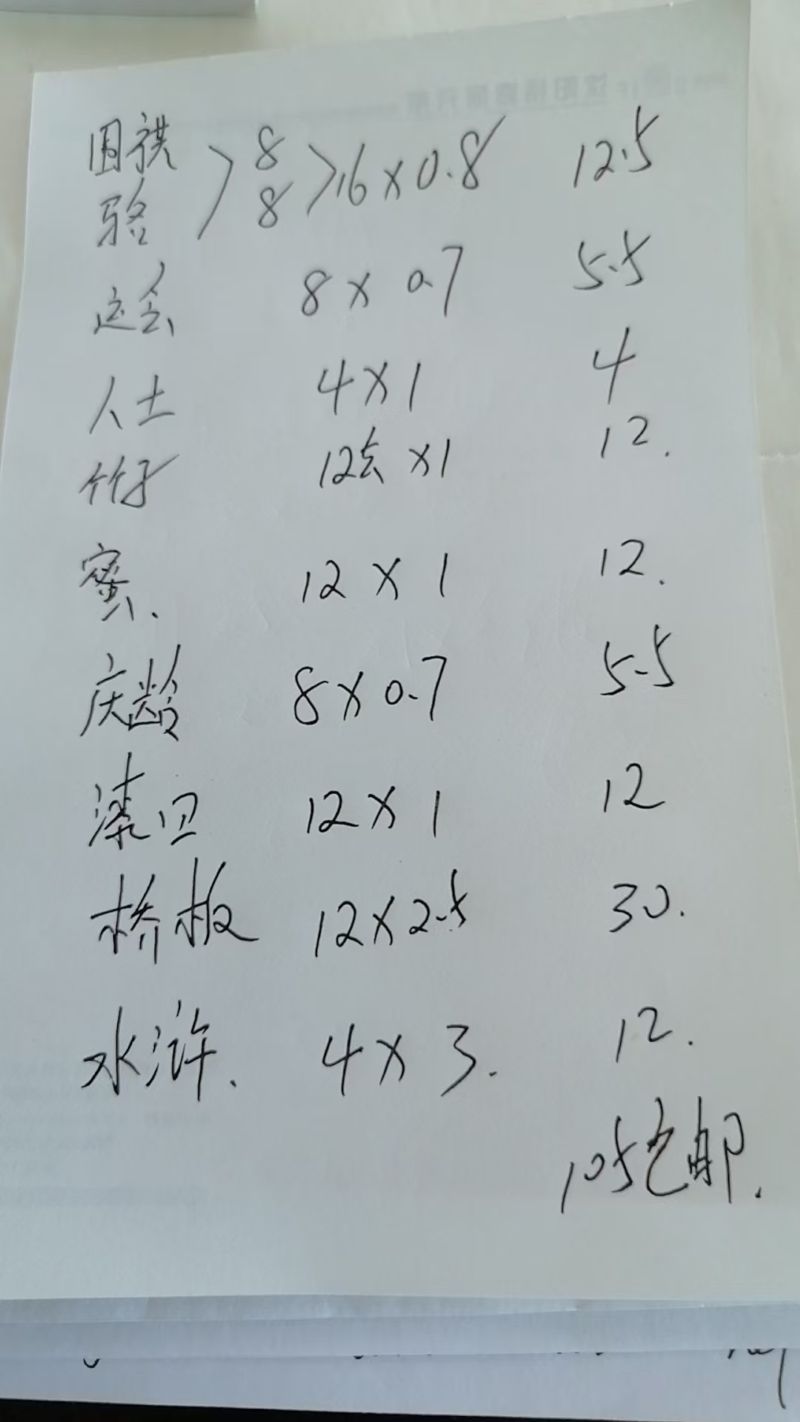 围祺 8
骆 8 >16×0.8 12.5
运会 8×0.7 5.5
人士 4×1 4
竹子 12套×1 12.
蜜、 12×1 12.
庆龄 8×0.7 5.5
漆卫 12×1 12
桥板 12×2.5 30.
水浒、 4×3. 12.
105包邮.